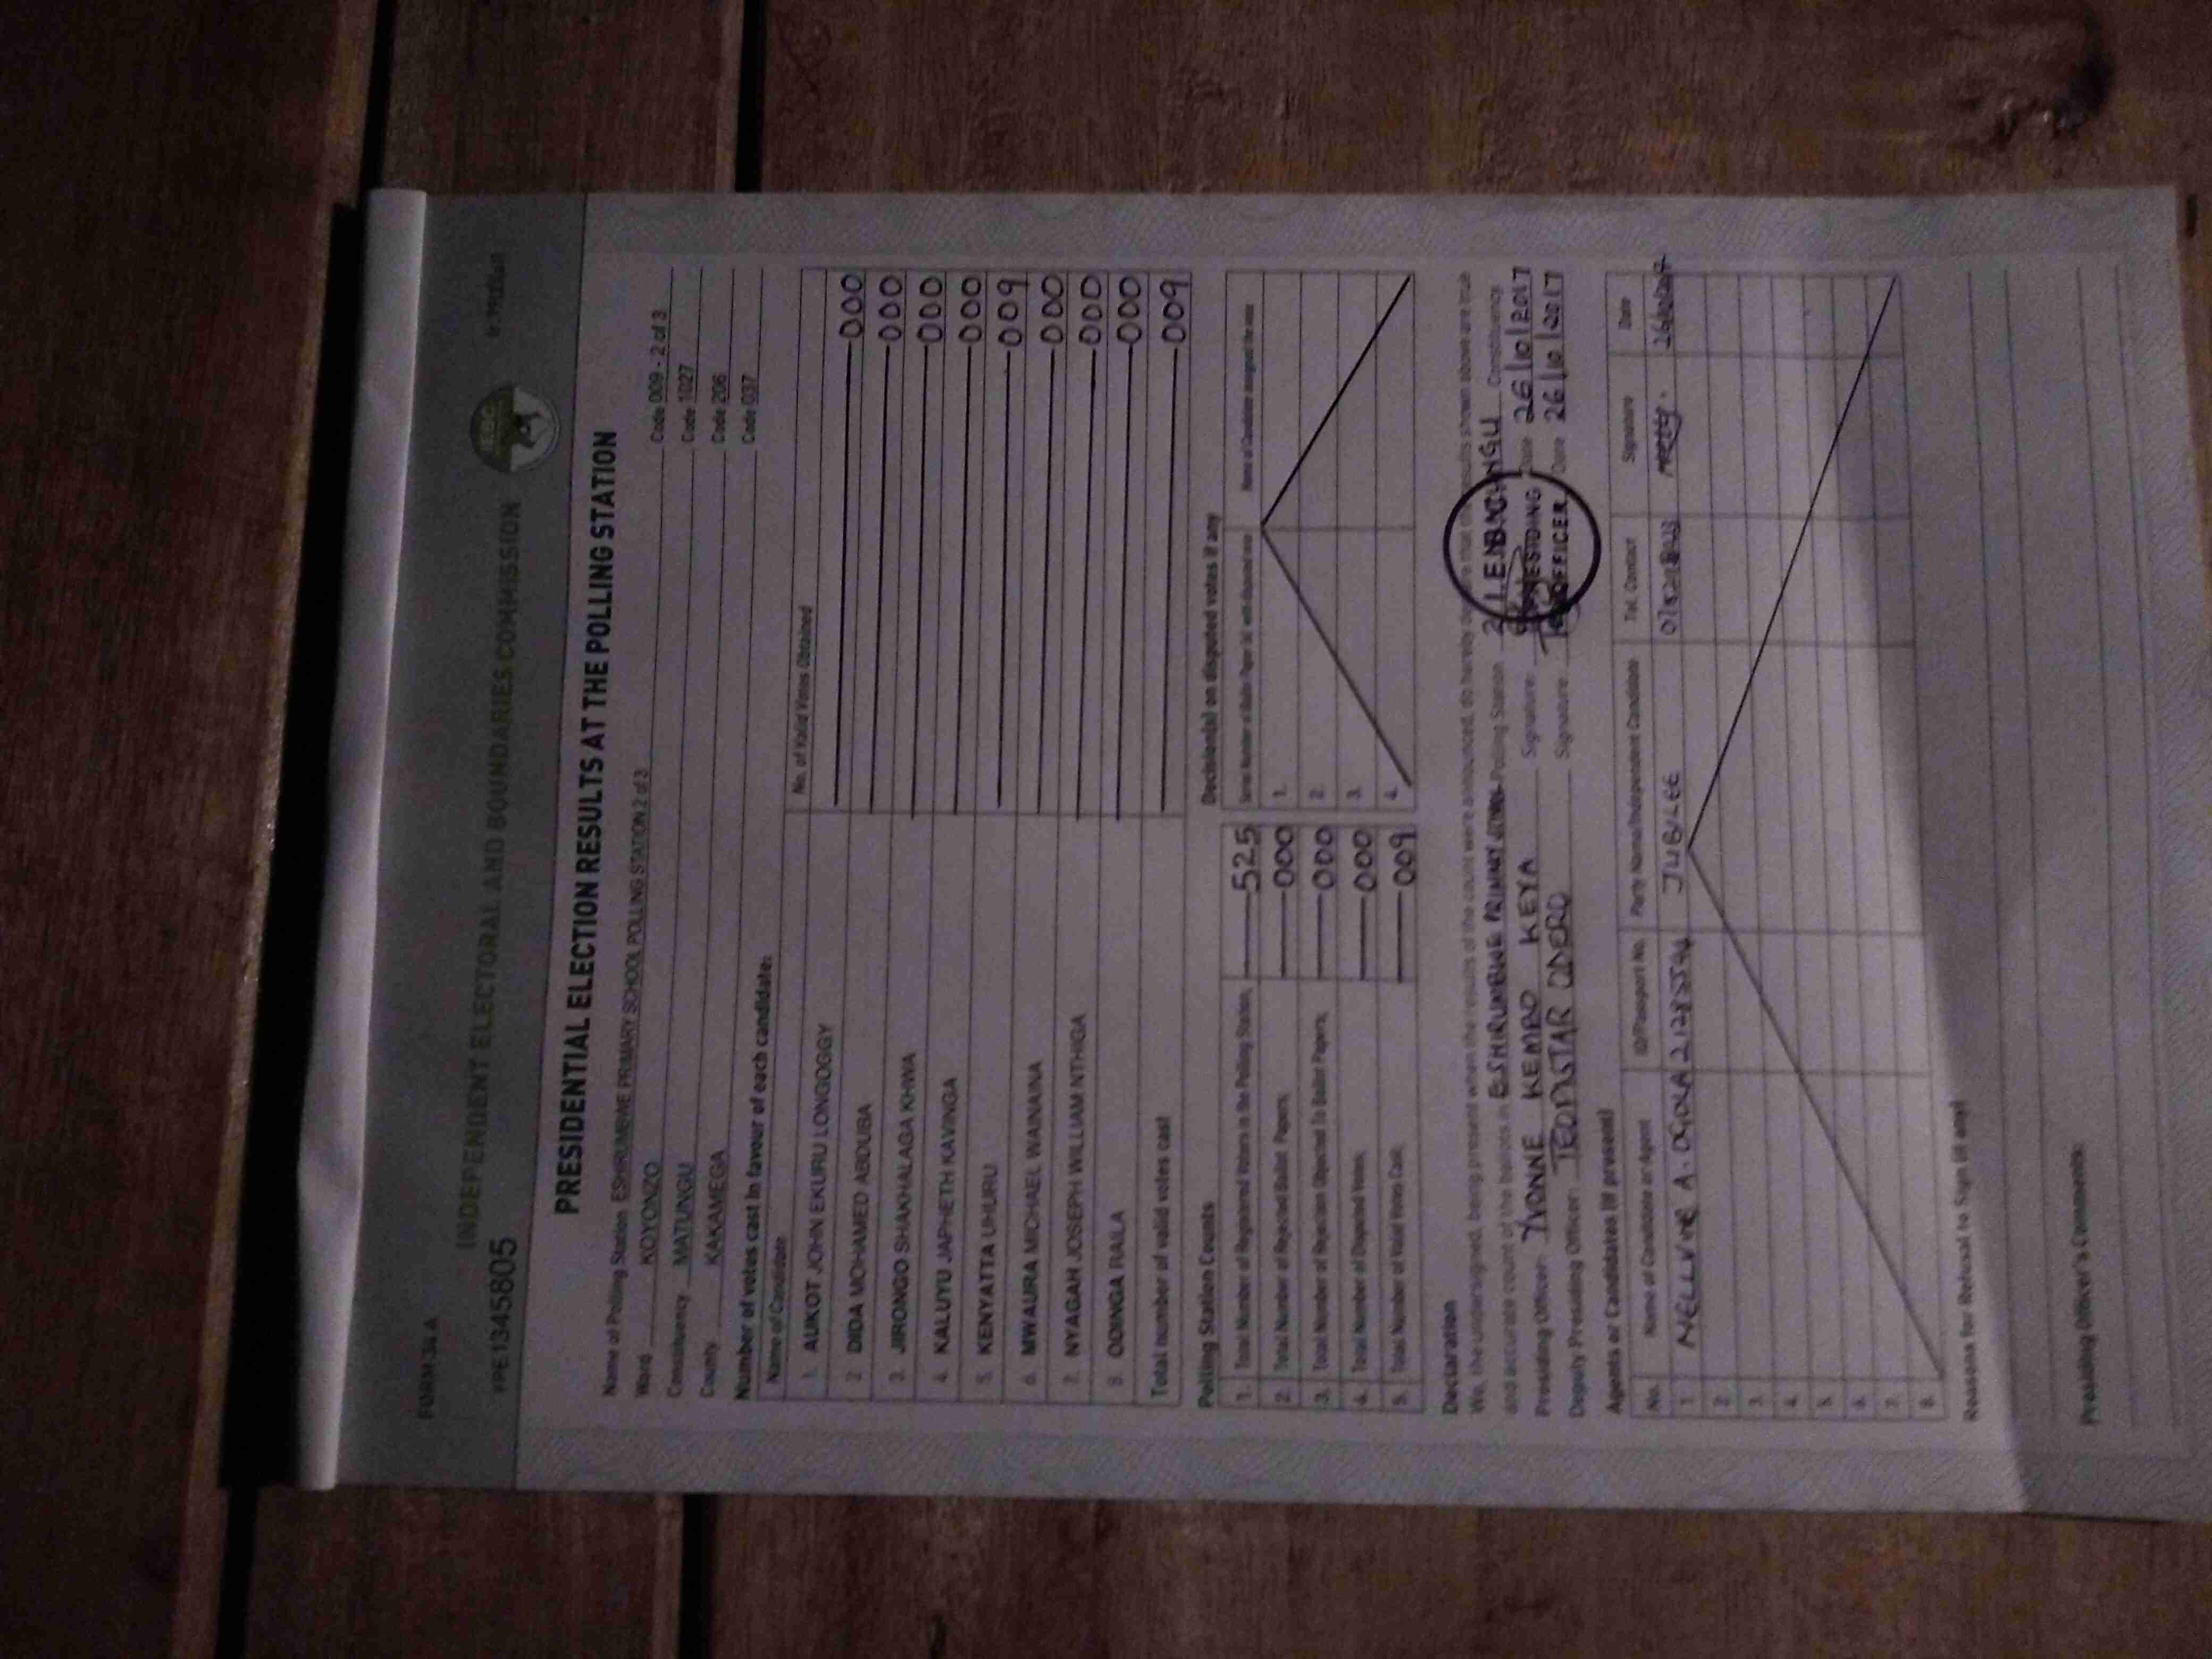 FORM 34 A
INDEPENDENT ELECTORAL AND BOUNDARIES COMMISSION
IEBC
PRESIDENTIAL ELECTION RESULTS AT THE POLLING STATION
Name of Polling Station ESHIRUMBWE PRIMARY SCHOOL POLLING STATION 2 of 3 Code 009 - 2 of 3
Ward KOYONZO Code 1027
Constituency MATUNGU Code 206
County KAKAMEGA Code 037
Number of votes cast in favour of each candidate:
Name of Candidate No. of Valid Votes Obtained
1. AUKOT JOHN EKURU LONGOGGY 000
2. DIDA MOHAMED ABDUBA 000
3. JIRONGO SHAKHALAGA KHWA 000
4. KALUYU JAPHETH KAVINGA 000
5. KENYATTA UHURU 009
6. MWAURA MICHAEL WAINAINA 000
7. NYAGAH JOSEPH WILLIAM NTHIGA 000
8. ODINGA RAILA 000
Total number of valid votes cast 009
Polling Station Counts Decision(s) on disputed votes if any
1. Total Number of Registered Voters in the Polling Station 525
2. Total Number of Rejected Ballot Papers 000 1.
3. Total Number of Rejection Objected To Ballot Papers 000 2.
4. Total Number of Disputed Votes 000 3.
5. Total Number of Valid Votes Cast 009 4.
Declaration
We, the undersigned, being present when the results of the count were announced, do hereby declare that the results shown above are true
and accurate count of the ballots in ESHIRUMBWE PRIMARY Polling Station Constituency
Presiding Officer: IVONNE KEMBO KEYA Signature: Date 26/10/2017
Deputy Presiding Officer: TEOPISTAR ODERO Signature Date 26/10/2017
IEBC
PRESIDING
OFFICER
Agents or Candidates (if present)
No. Name of Candidate or Agent ID/Passport No. Party Name/Independent Candidate Tel. Contact Signature Date
1 A. JUBILEE
2.
3.
4.
5.
6.
7.
8.
Reasons for Refusal to Sign (if any)
Presiding Officer's Comments: